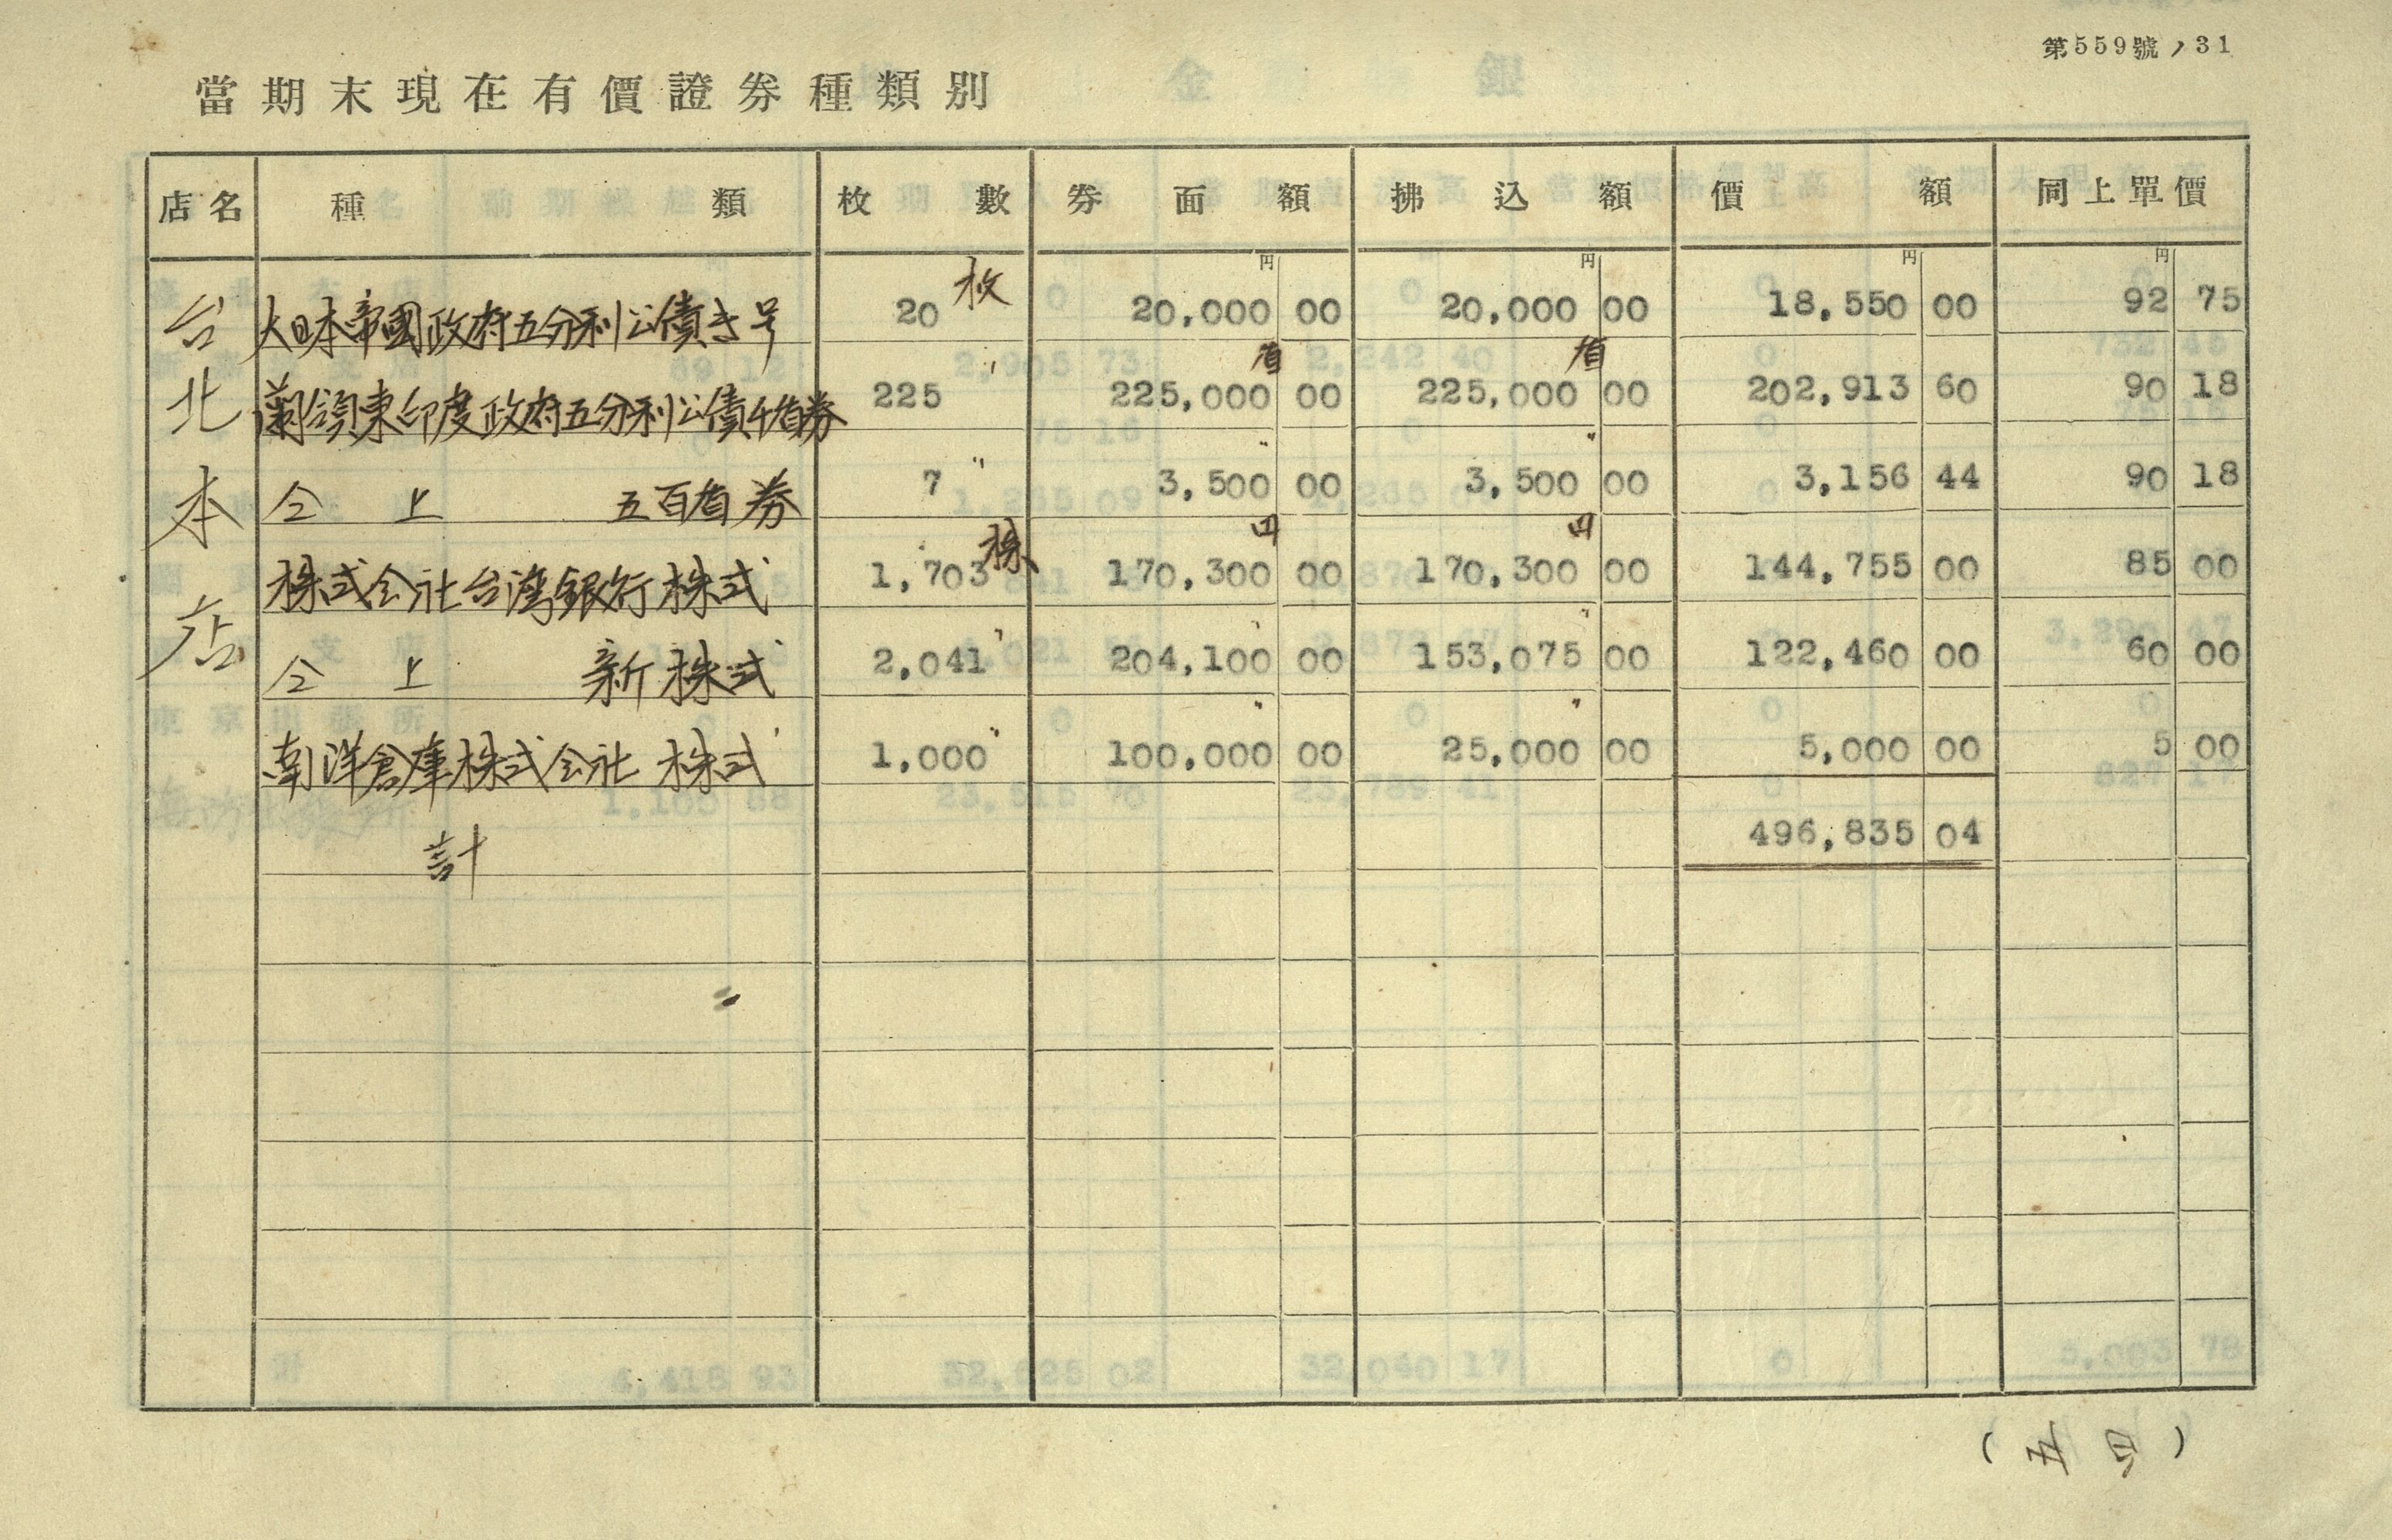 第559號ノ31
當期末現在有價證券種類別
店名 種類 枚數 券面額 拂込額 價額 同上單價
円 円 円 円
台北本店
大日本帝國政府五分利公債き号 20枚 20,000 00 20,000 00 18,550 00 92 75
蘭領東印度政府五分利公債千盾券 225 〃 盾 225,000 00 盾 225,000 00 202,913 60 90 18
仝上 五百盾券 7 〃 〃 3,500 00 〃 3,500 00 3,156 44 90 18
株式会社台湾銀行株式 1,703株 円 170,300 00 円 170,300 00 144,755 00 85 00
仝上 新株式 2,041 〃 〃 204,100 00 〃 153,075 00 122,460 00 60 00
南洋倉庫株式会社株式 1,000 〃 〃 100,000 00 〃 25,000 00 5,000 00 5 00
計 496,835 04
(五四)